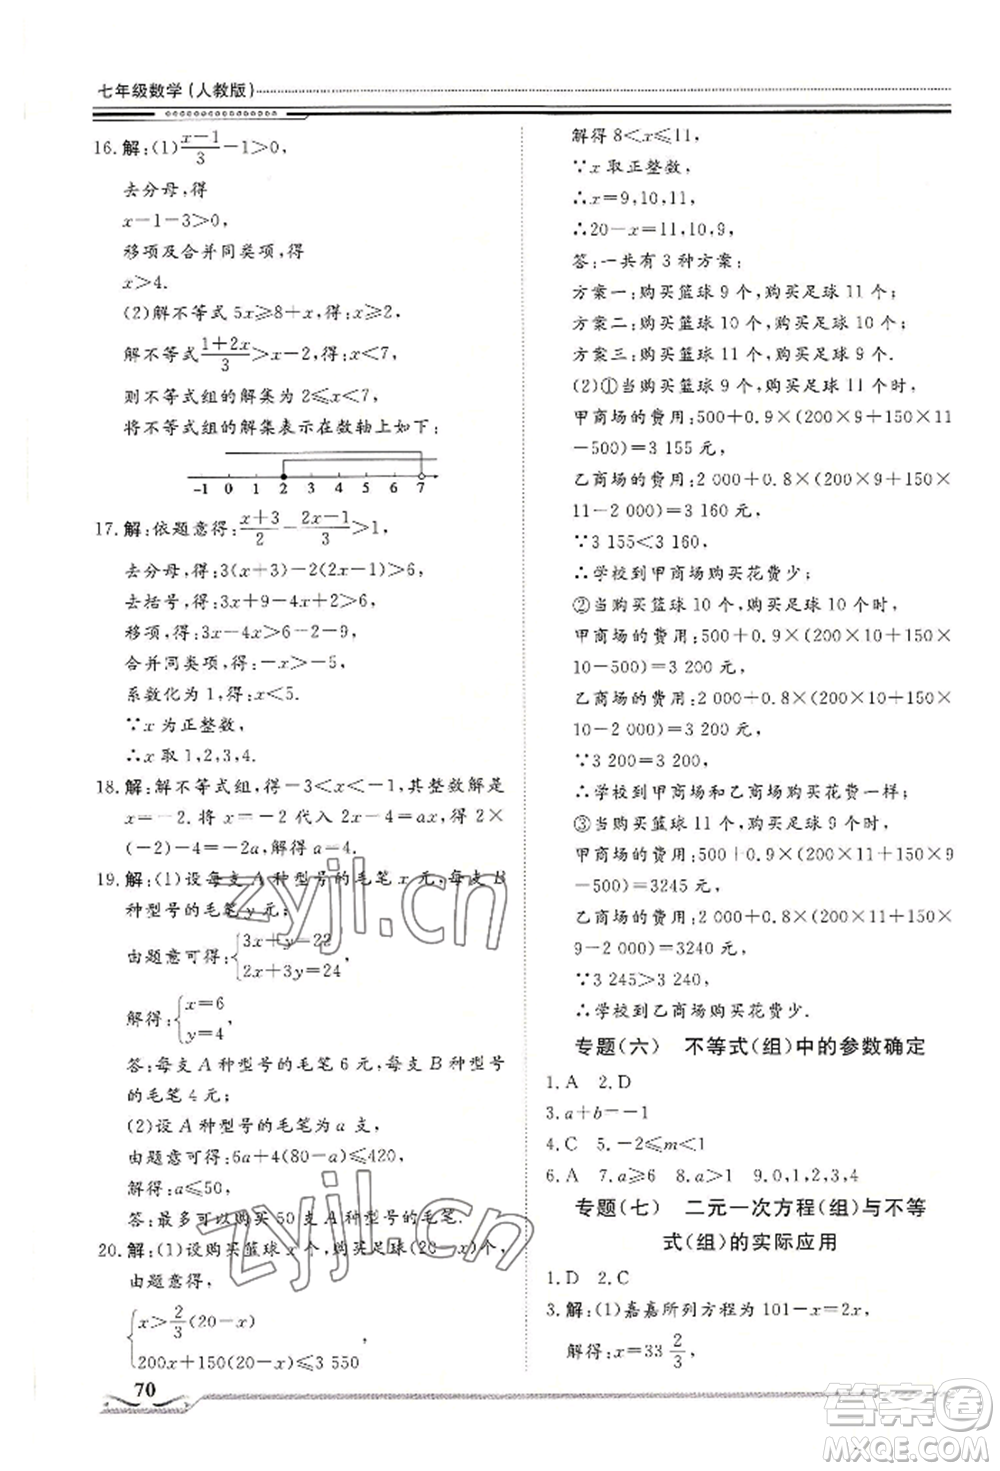 七年级数学(人教版)
16.解:(1)\frac{x-1}{3}-1>0,
去分母,得
x-1-3>0,
移项及合并同类项,得
x>4.
(2)解不等式5x≥8+x,得:x≥2,
解不等式\frac{1+2x}{3}>x-2,得:x<7,
则不等式组的解集为2≤x<7,
将不等式组的解集表示在数轴上如下:
-1 0 1 2 3 4 5 6 7
17.解:依题意得:\frac{x+3}{2}-\frac{2x-1}{3}>1,
去分母,得:3(x+3)-2(2x-1)>6,
去括号,得:3x+9-4x+2>6,
移项,得:3x-4x>6-2-9,
合并同类项,得:-x>-5,
系数化为1,得:x<5.
∵x为正整数,
∴x取1,2,3,4.
18.解:解不等式组,得-3<x<-1,其整数解是
x=-2.将x=-2代入2x-4=ax,得2×
(-2)-4=-2a,解得a=4.
19.解:(1)设每支A种型号的毛笔x元,每支B
种型号的毛笔y元;
由题意可得:{3x+y=22
2x+3y=24,
解得:{x=6
y=4,
答:每支A种型号的毛笔6元,每支B种型号
的毛笔4元;
(2)设A种型号的毛笔为a支,
由题意可得:6a+4(80-a)≤420,
解得:a≤50,
答:最多可以购买50支A种型号的毛笔.
20.解:(1)设购买篮球x个,购买足球(20-x)个,
由题意得,
{x>\frac{2}{3}(20-x)
200x+150(20-x)≤3 550,
70
解得8<x≤11,
∵x取正整数,
∴x=9,10,11,
∴20-x=11,10,9,
答:一共有3种方案:
方案一:购买篮球9个,购买足球11个,
方案二:购买篮球10个,购买足球10个,
方案三:购买篮球11个,购买足球9个.
(2)①当购买篮球9个,购买足球11个时,
甲商场的费用:500+0.9×(200×9+150×11
-500)=3 155元,
乙商场的费用:2 000+0.8×(200×9+150×
11-2 000)=3 160元,
∵3 155<3 160,
∴学校到甲商场购买花费少;
②当购买篮球10个,购买足球10个时,
甲商场的费用:500+0.9×(200×10+150×
10-500)=3 200元,
乙商场的费用:2 000+0.8×(200×10+150×
10-2 000)=3 200元,
∵3 200=3 200,
∴学校到甲商场和乙商场购买花费一样;
③当购买篮球11个,购买足球9个时,
甲商场的费用:500+0.9×(200×11+150×
9-500)=3245元,
乙商场的费用:2 000+0.8×(200×11+150×
9-2 000)=3240元,
∵3 245>3 240,
∴学校到乙商场购买花费少.
专题(六) 不等式(组)中的参数确定
1.A 2.D
3.a+b=-1
4.C 5.-2≤m<1
6.A 7.a≥6 8.a>1 9.0,1,2,3,4
专题(七) 二元一次方程(组)与不等
式(组)的实际应用
1.D 2.C
3.解:(1)嘉嘉所列方程为101-x=2x,
解得:x=33\frac{2}{3},
zyjl.cn
zyjl.cn
答案圈
MXQE.COM